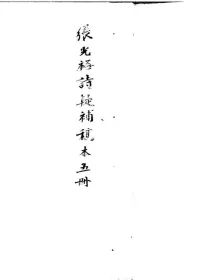 張光裕詩疑補稿本五冊